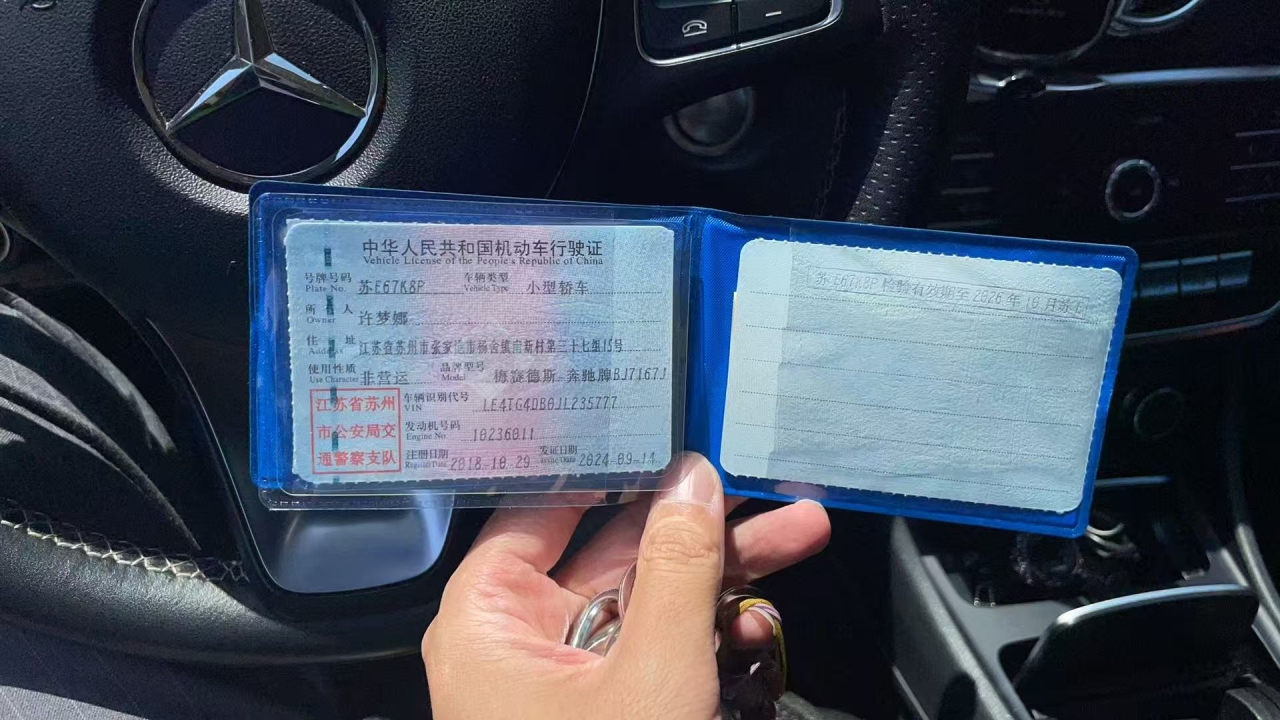 中华人民共和国机动车行驶证
Vehicle License of the People's Republic of China
号牌号码 苏E67K8P 车辆类型 小型轿车
Plate No. Vehicle Type
所有人 许梦娜
Owner
住址 江苏省苏州市张家港市杨舍镇南新村第三十七组15号
Address
使用性质 非营运 品牌型号 梅赛德斯-奔驰牌BJ7167J
Use Character Model
江苏省苏州
市公安局交
通警察支队
车辆识别代号 LE4TG4DB0JL235777
VIN
发动机号码 10236011
Engine No.
注册日期 2018-10-29 发证日期 2024-09-14
Register Date Issue Date
苏E67K8P 检验有效期至2026年10月苏E